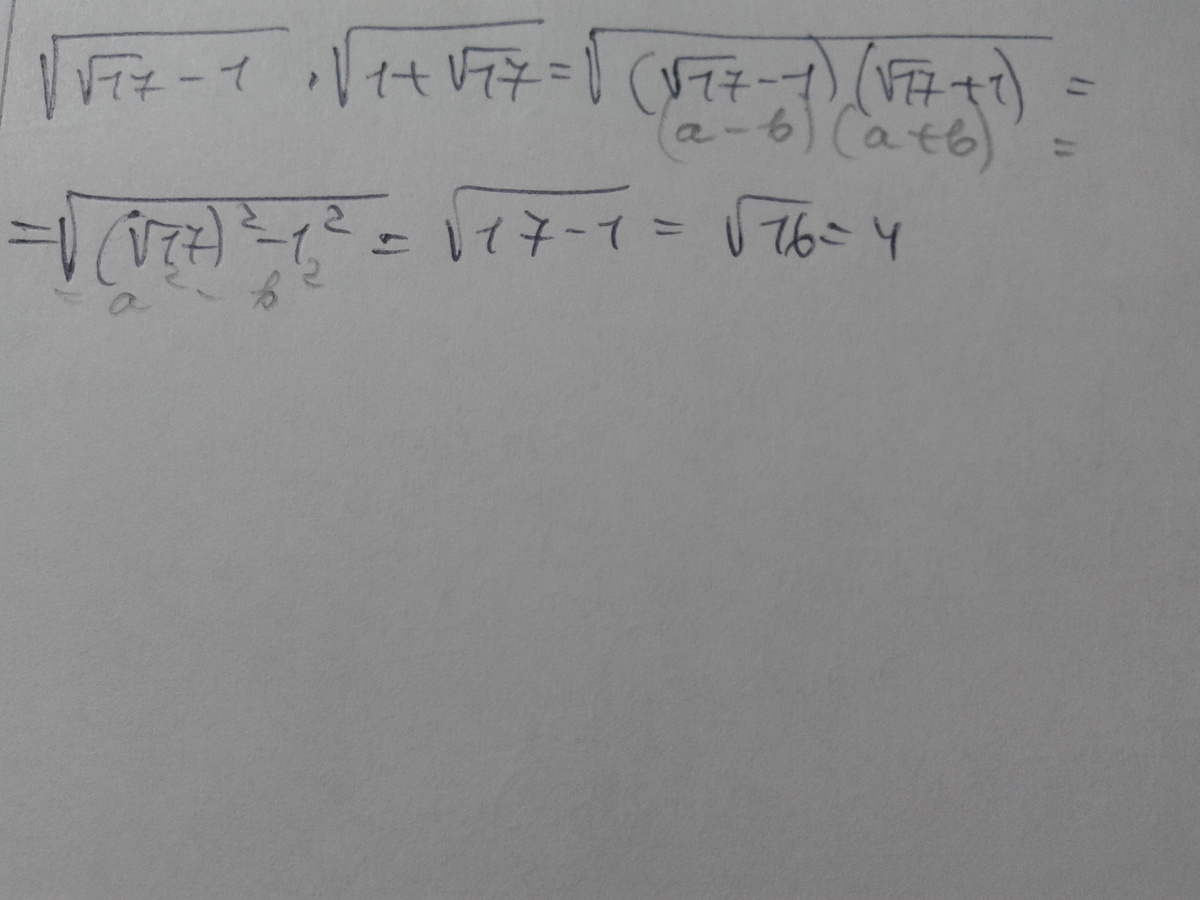 √(√17 - 1) · √(1 + √17) = √((√17 - 1)(√17 + 1)) =
(a - b) (a + b) =
= √((√17)² - 1²) = √(17 - 1) = √16 = 4
= a² - b²